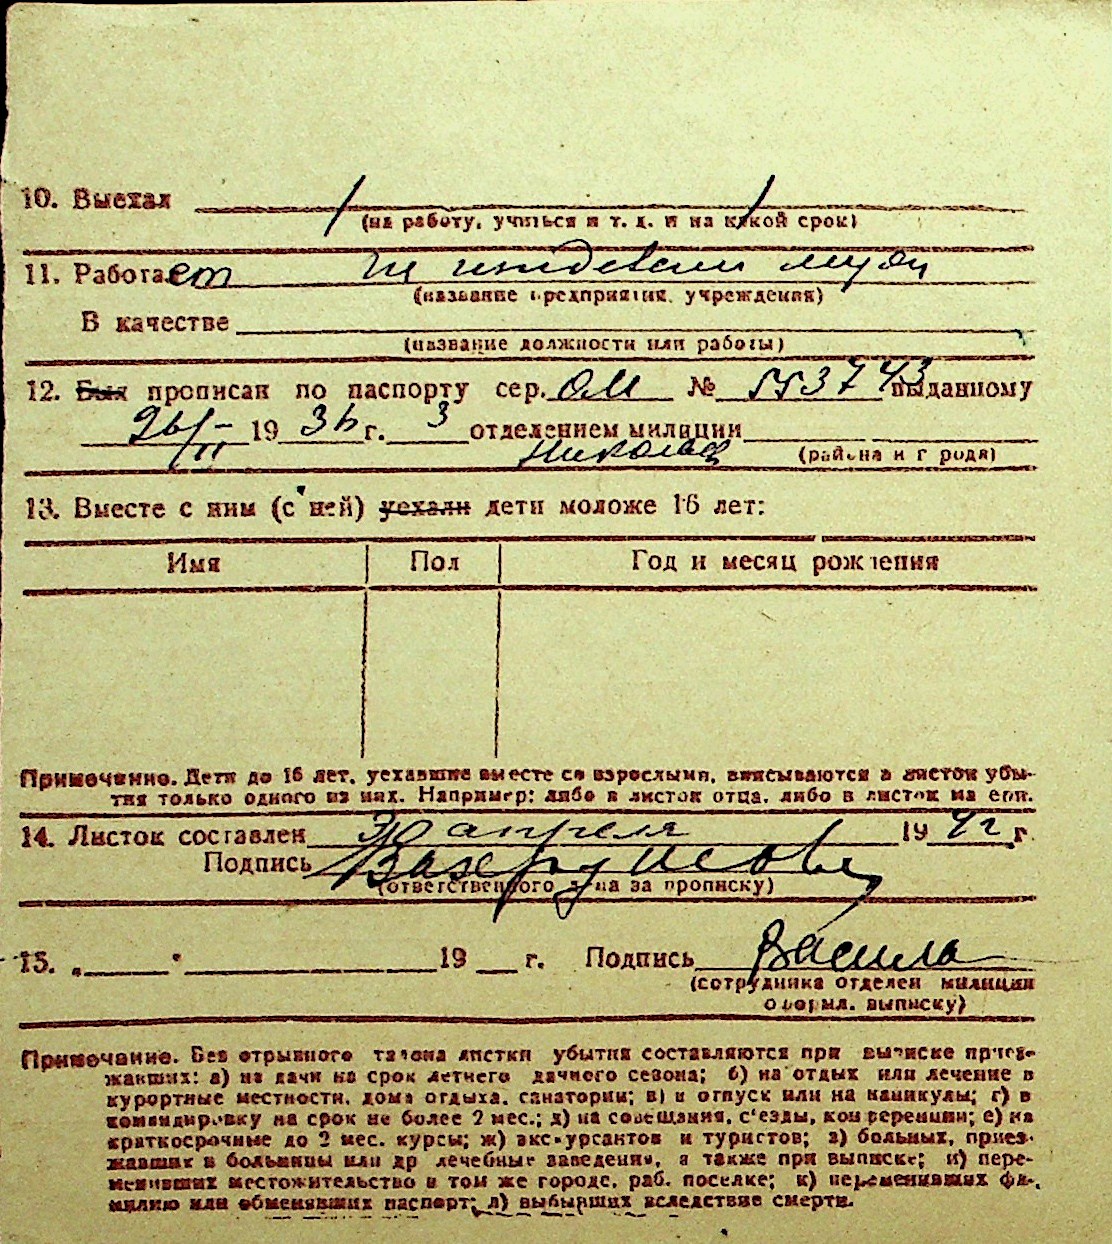 10. Выехал
(на работу, учиться и т. д. и на какой срок)
11. Работает на иждевении мужа
(название предприятия, учреждения)
В качестве
(название должности или работы)
12. Был прописан по паспорту сер. ОМ № 553743 выданному
26/III 1936 г. 3 отделением милиции
Николаев (района и города)
13. Вместе с ним (с ней) уехали дети моложе 16 лет:
Имя Пол Год и месяц рождения
Примечание. Дети до 16 лет, уехавшие вместе со взрослыми, вписываются в листок убы-
тия только одного из них. Например: либо в листок отца, либо в листок матери.
14. Листок составлен 30 апреля 19 42 г.
Подпись
(ответственного лица за прописку)
15. „ " 19 г. Подпись
(сотрудника отделен милиции
оформл. выписку)
Примечание. Без отрывного талона листки убытия составляются при выписке приез-
жавших: а) на дачи на срок летнего дачного сезона; б) на отдых или лечение в
курортные местности, дома отдыха, санатории; в) в отпуск или на каникулы; г) в
командировку на срок не более 2 мес.; д) на совещания, с'езды, конференции; е) на
краткосрочные до 2 мес. курсы; ж) экскурсантов и туристов; з) больных, приез-
жавших в больницы или др лечебные заведения, а также при выписке; и) пере-
менивших местожительство в том же городе, раб. поселке; к) переменивших фа-
милию или обменявших паспорт; л) выбывших вследствие смерти.